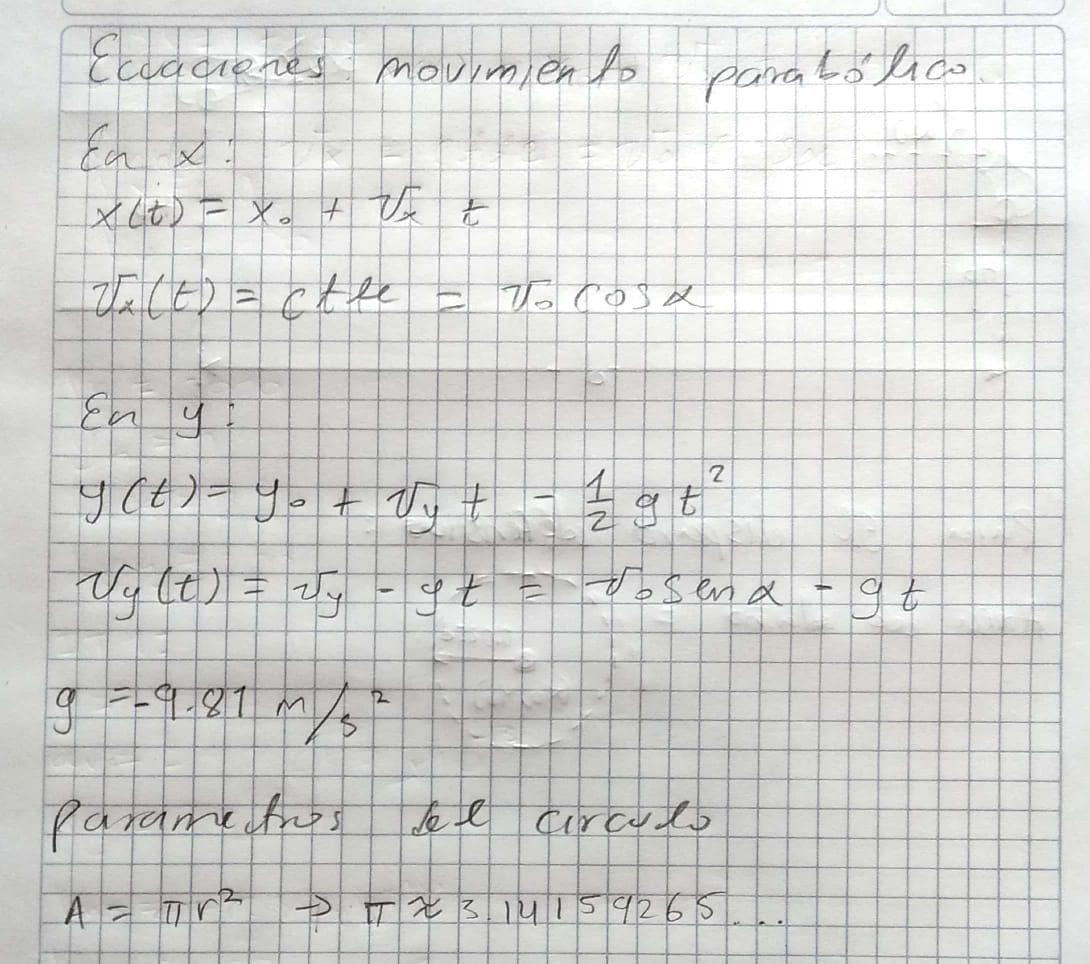 Ecuaciones movimiento parabólico.
En x:
x(t) = x₀ + vₓ t
vₓ(t) = ctte = v₀ cos α
En y:
y(t) = y₀ + v_y t - 1/2 g t²
v_y(t) = v_y - g t = v₀ sen α - g t
g = -9.81 m/s²
Parametros del circulo
A = πr² → π ≈ 3.14159265...